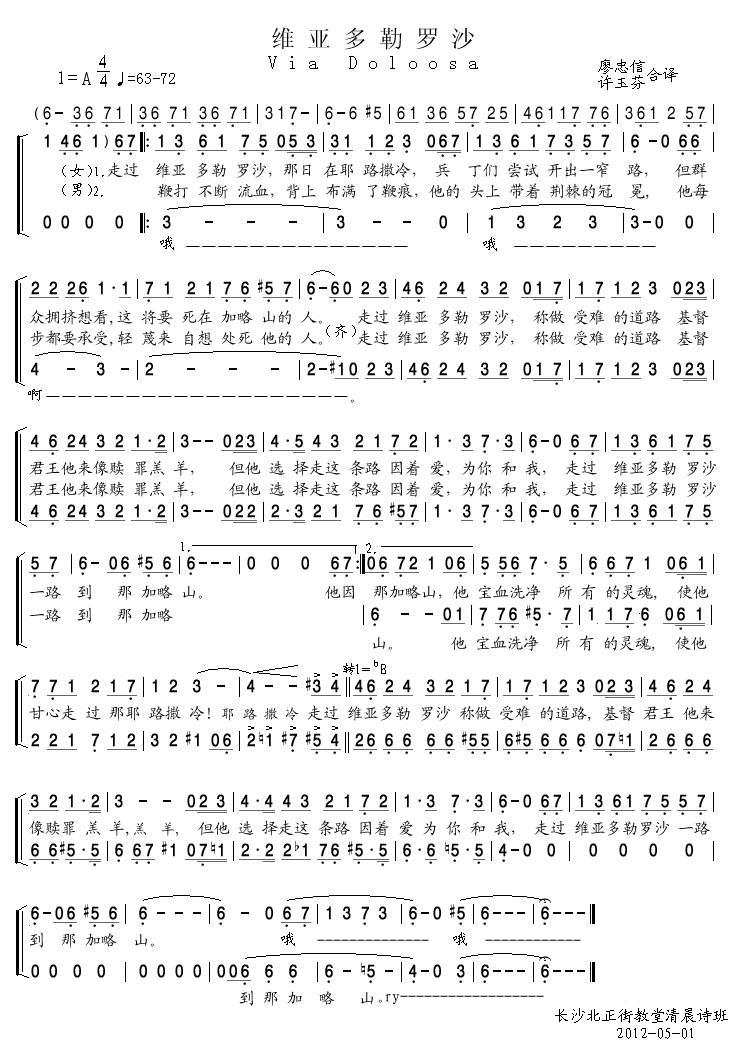 维亚多勒罗沙
Via Doloosa
1=A 4/4 ♩=63-72
廖忠信
许玉芬 合译
(6- 36 71 | 36 71 36 71 | 317- | 6-6 #5 | 61 36 57 25 | 4611 7 76 | 361 2 57 |
1 461 ) 67 |: 13 61 75 053 | 31 123 067 | 136 17 357 | 6-0 66 |
(女)1.走过 维亚多勒罗沙,那日在耶路撒冷,兵丁们尝试开出一窄路,但群
(男)2. 鞭打不断流血,背上布满了鞭痕,他的头上带着荆棘的冠冕,他每
0 0 0 0 |: 3 - - - | 3 - - 0 | 1 3 2 3 | 3-0 0 |
哦 ———————————— 哦 —————————
2 2 26 1·1 | 71 2176 #57 | 6-60 23 | 46 24 32 017 | 17 123 023 |
众拥挤想看,这将要死在加略山的人。 走过维亚多勒罗沙,称做受难的道路 基督
步都要承受,轻蔑来自想处死他的人。(齐)走过维亚多勒罗沙,称做受难的道路 基督
4 - 3 - | 2 - - - | 2-#10 23 | 46 24 32 017 | 17 123 023 |
啊——————————————————。
4624 32 1·2 | 3-- 023 | 4·5 43 2172 | 1·3 7·3 | 6-0 67 | 136175
君王他来像赎罪羔羊, 但他选择走这条路因着爱,为你和我,走过维亚多勒罗沙
君王他来像赎罪羔羊, 但他选择走这条路因着爱,为你和我,走过维亚多勒罗沙
4624 32 1·2 | 3-- 022 | 2·3 21 76 #57 | 1·3 7·3 | 6-0 67 | 136175
1. 2.
57 | 6-06 #56 | 6--- | 0 0 0 67 :| 06 72 1 06 | 5 567·5 | 6 671 061 |
一路到那加略山。 他因那加略山,他宝血洗净所有的灵魂,使他
一路到 那加略
6 - - 01 | 776 #5·7 | 1176 061 |
山。 他宝血洗净所有的灵魂,使他
转1=bB
771 217 | 12 3 - | 4 - - #34 ‖ 4624 3217 | 17 123 023 | 4624
甘心走过那耶路撒冷!耶路撒冷走过维亚多勒罗沙称做受难的道路,基督君王他来
221 712 | 32 #106 | 2♮1 #7 #54 ‖ 2666 66#55 | 6#5666 07♮1 | 2666
32 1·2 | 3 - - 023 | 4·4 43 2172 | 1·3 7·3 | 6-0 67 | 136 17557 |
像赎罪羔羊,羔羊, 但他选择走这条路因着爱为你和我,走过维亚多勒罗沙一路
66#5·5 | 667 #107♮1 | 2·22b1 76#5·5 | 6·6♮5·5 | 4-0 0 | 0 0 0 0 |
6-06 #56 | 6--- | 6 - 0 67 | 1373 | 6-0 #5 | 6--- | 6--- ‖
到那加略山。 哦 ------------- 哦 ------------
0 0 0 0 | 0 0 0 0 | 006 6 6 | 6 - ♮5 - | 4-0 3 | 6--- | 6--- ‖
到那加略山。ry------------------
长沙北正街教堂清晨诗班
2012-05-01